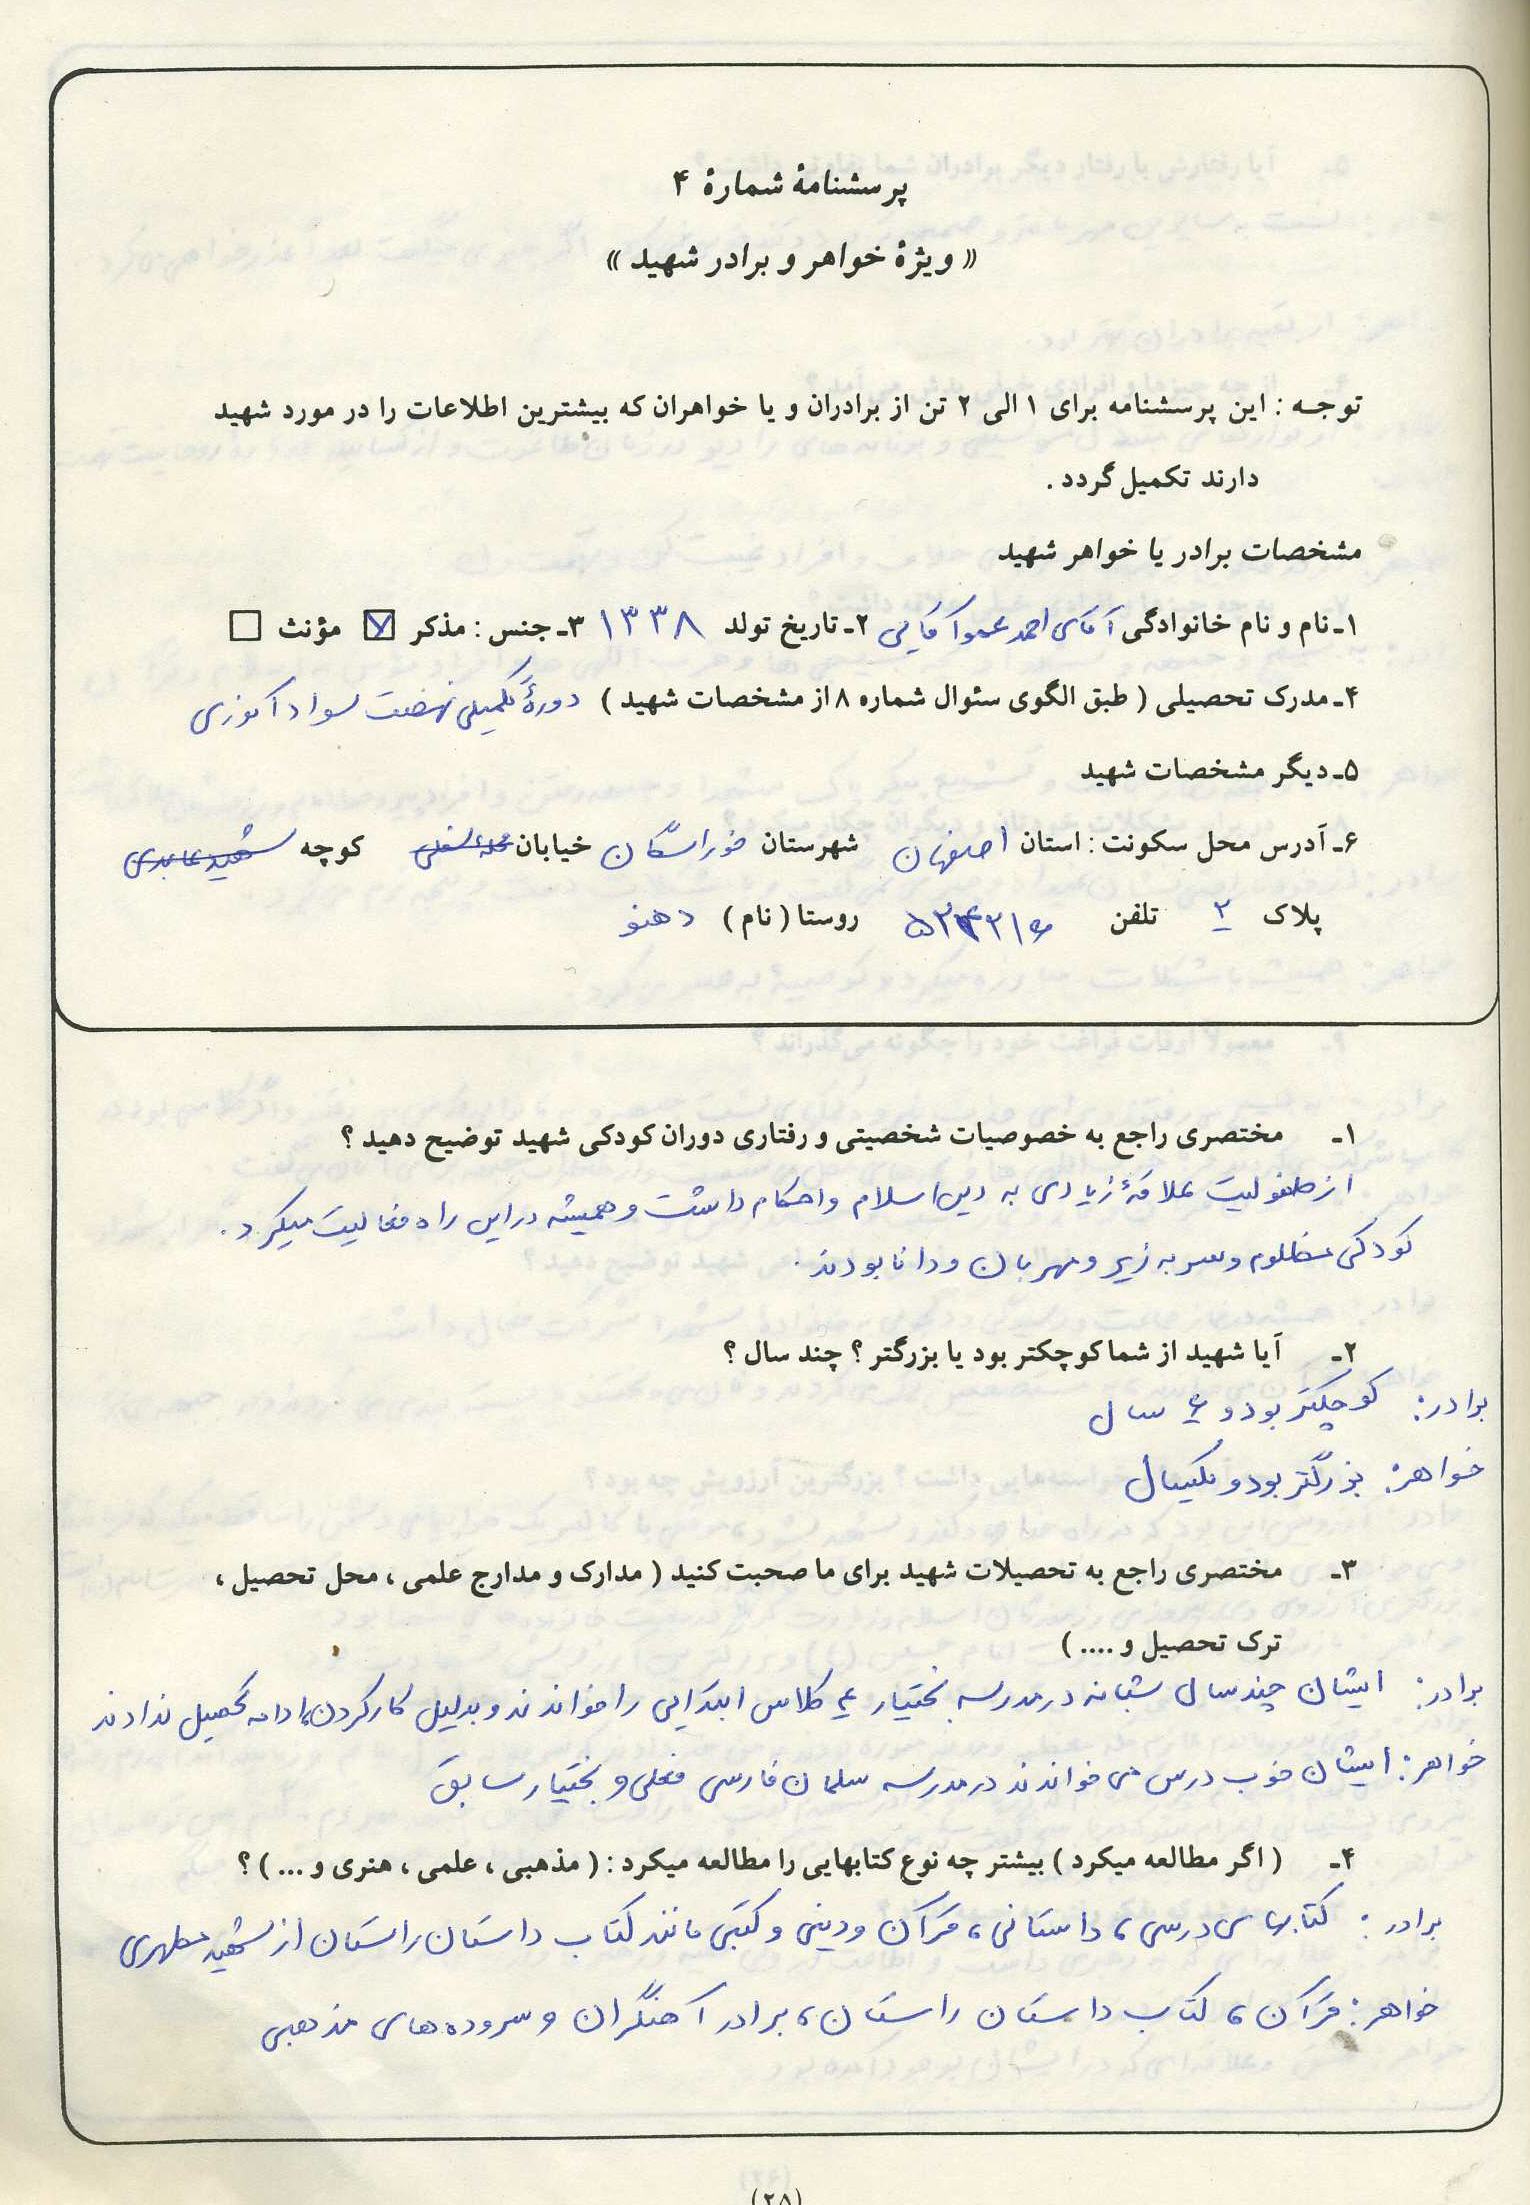 پرسشنامهٔ شمارهٔ ۴
« ویژهٔ خواهر و برادر شهید »
توجه : این پرسشنامه برای ۱ الی ۲ تن از برادران و یا خواهران که بیشترین اطلاعات را در مورد شهید
دارند تکمیل گردد .
مشخصات برادر یا خواهر شهید
۱ـ نام و نام خانوادگی آقای احمد عموآقایی ۲ـ تاریخ تولد ۱۳۳۸ ۳ـ جنس : مذکر ☑ مؤنث ☐
۴ـ مدرک تحصیلی ( طبق الگوی سئوال شماره ۸ از مشخصات شهید ) دورهٔ تکمیلی نهضت سواد آموزی
۵ـ دیگر مشخصات شهید
۶ـ آدرس محل سکونت : استان اصفهان شهرستان خوراسگان خیابان محله سفلی کوچه شهید عابدی
پلاک ۲ تلفن روستا ( نام ) دهنو
۱ـ مختصری راجع به خصوصیات شخصیتی و رفتاری دوران کودکی شهید توضیح دهید ؟
از طفولیت علاقهٔ زیادی به دین اسلام واحکام داشت و همیشه در این راه فعالیت میکرد .
کودکی مظلوم و سر به زیر و مهربان و دانا بودند .
۲ـ آیا شهید از شما کوچکتر بود یا بزرگتر ؟ چند سال ؟
برادر : کوچکتر بود و ۶ سال
خواهر : بزرگتر بود و یکسال
۳ـ مختصری راجع به تحصیلات شهید برای ما صحبت کنید ( مدارک و مدارج علمی ، محل تحصیل ،
ترک تحصیل و .... )
برادر : ایشان چند سال شبانه در مدرسه بختیار ۴ کلاس ابتدایی را خواندند و بدلیل کار کردن، ادامه تحصیل ندادند
خواهر : ایشان خوب درس می خواندند در مدرسه سلمان فارسی فعلی و بختیار سابق
۴ـ ( اگر مطالعه میکرد ) بیشتر چه نوع کتابهایی را مطالعه میکرد : ( مذهبی ، علمی ، هنری و ... ) ؟
برادر : کتابهای درسی ، داستانی ، قرآن و دینی و کتبی مانند کتاب داستان راستان از شهید مطهری
خواهر : قرآن ، کتاب داستان راستان ، برادر آهنگران و سروده های مذهبی
(۲۸)